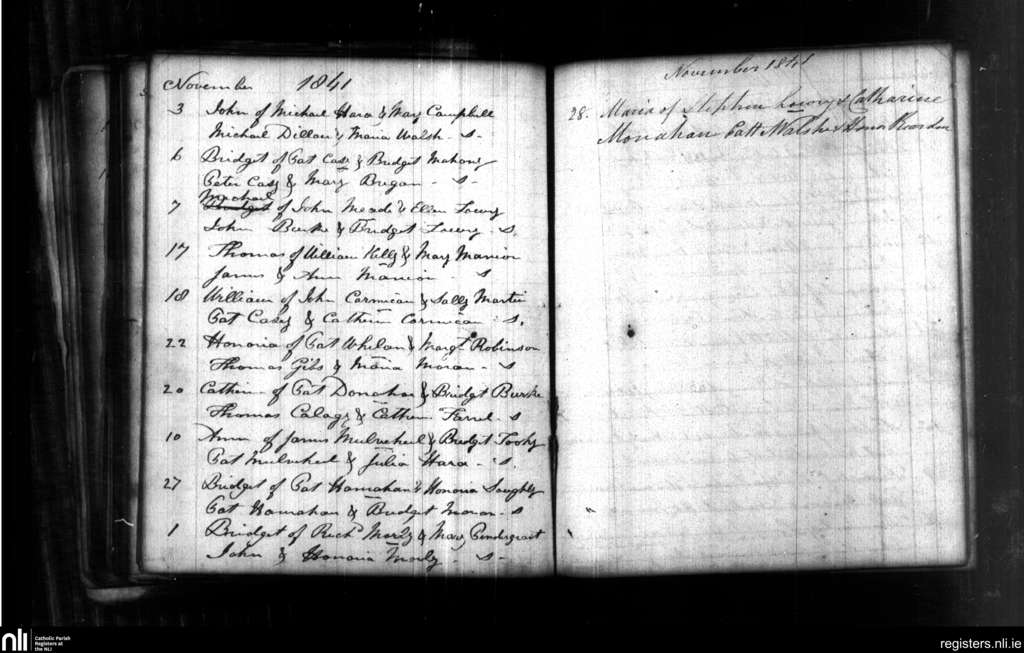 November 1841
3 John of Michael Hara & Mary Campbell
Michael Dillon & Maria Walsh - S -
6 Bridget of Pat Casy & Bridget Mahony
Peter Casy & Mary Brogan - S -
Michael
7 Bridget of John Meade & Ellen Lowry
John Burke & Bridget Lowry - S.
17 Thomas of William Kelly & Mary Manion
James & Ann Manion - S
18 William of John Cormican & Sally Martin
Pat Casey & Cathern Cormican : S.
22 Honoria of Pat Whelan & Margt Robinson
Thomas Gibs & Maria Moran - S
20 Cathern of Pat Donohoe & Bridget Burke
Thomas & Cathern Farrel - S
10 Ann of James Mulvehul & Bridget Toohy
Pat Mulvehul & Julia Hara - S.
27 Bridget of Pat Hanrahan & Honoria
Pat Hanrahan & Bridget Moran - S
1 Bridget of Richd Morly & Mary Pendergrast
John & Honoria Morly - S -
November 1841
28. Maria of Stephen Lowry & Catharine
Monahan Patt Walsh & Honor
nli
Catholic Parish
Registers at
the NLI
registers.nli.ie